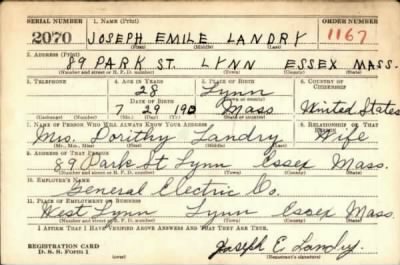 SERIAL NUMBER 1. NAME (Print) ORDER NUMBER
2070 JOSEPH EMILE LANDRY 1167
(First) (Middle) (Last)
2. ADDRESS (Print)
89 PARK ST. LYNN ESSEX MASS.
(Number and street or R. F. D. number) (Town) (County) (State)
3. TELEPHONE 4. AGE IN YEARS 5. PLACE OF BIRTH 6. COUNTRY OF CITIZENSHIP
28 Lynn
DATE OF BIRTH (Town or county)
7 29 190 Mass United States
(Mo.) (Day) (Yr.) (State or country)
7. NAME OF PERSON WHO WILL ALWAYS KNOW YOUR ADDRESS 8. RELATIONSHIP OF THAT PERSON
Mrs. Dorithy Landry Wife
(Mr., Mrs., Miss) (First) (Middle) (Last)
9. ADDRESS OF THAT PERSON
89 Park St Lynn Essex Mass.
(Number and street or R. F. D. number) (Town) (County) (State)
10. EMPLOYER'S NAME
General Electric Co.
11. PLACE OF EMPLOYMENT OR BUSINESS
West Lynn Lynn Essex Mass.
(Number and street or R. F. D. number) (Town) (County) (State)
I AFFIRM THAT I HAVE VERIFIED ABOVE ANSWERS AND THAT THEY ARE TRUE.
REGISTRATION CARD Joseph E. Landry.
D. S. S. Form 1 (Registrant's signature)